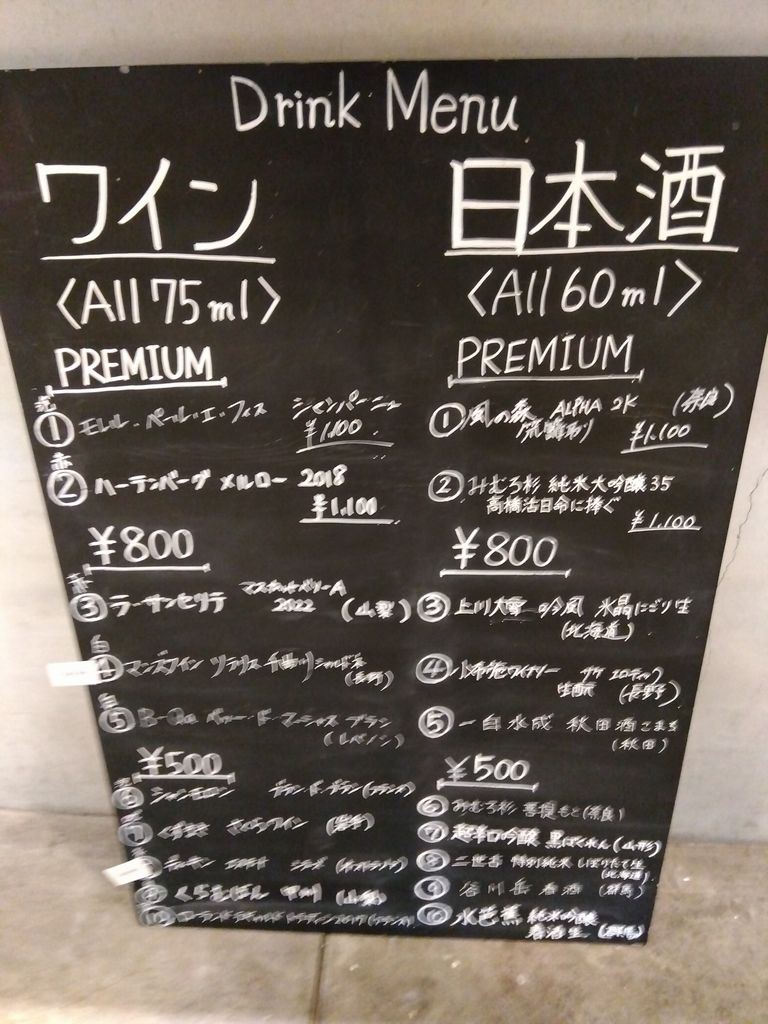 Drink Menu
ワイン
<All 75ml>
PREMIUM
泡
① モレル・ペール・エ・フィス シャンパーニュ
¥1,100
赤
② ハーテンバーグ メルロー 2018
¥1,100
¥800
赤
③ ラーサンセリテ マスカットベリーA
2022 (山梨)
白
④ マンズワイン ソラリス 千曲川 シャルドネ
(長野)
白
⑤ B-Qa
(レバノン)
¥500
(フランス)
⑦ ワイン (岩手)
⑨ くらむぼん 甲州 (山梨)
⑩ (フランス)
日本酒
<All 60ml>
PREMIUM
① 風の森 ALPHA 2K (奈良)
¥1,100
② みむろ杉 純米大吟醸35
高橋活日命に捧ぐ
¥1,100
¥800
③ 上川大雪 吟風 氷晶にごり生
(北海道)
④ 小布施ワイナリー サケ エロティック
生酛 (長野)
⑤ 一白水成 秋田酒こまち
(秋田)
¥500
⑥ みむろ杉 菩提もと (奈良)
⑦ 超辛口吟醸 黒ばくれん (山形)
⑧ 二世古 特別純米 しぼりたて生
(北海道)
⑨ 谷川岳 春酒 (群馬)
⑩ 水芭蕉 純米吟醸
春酒生 (群馬)